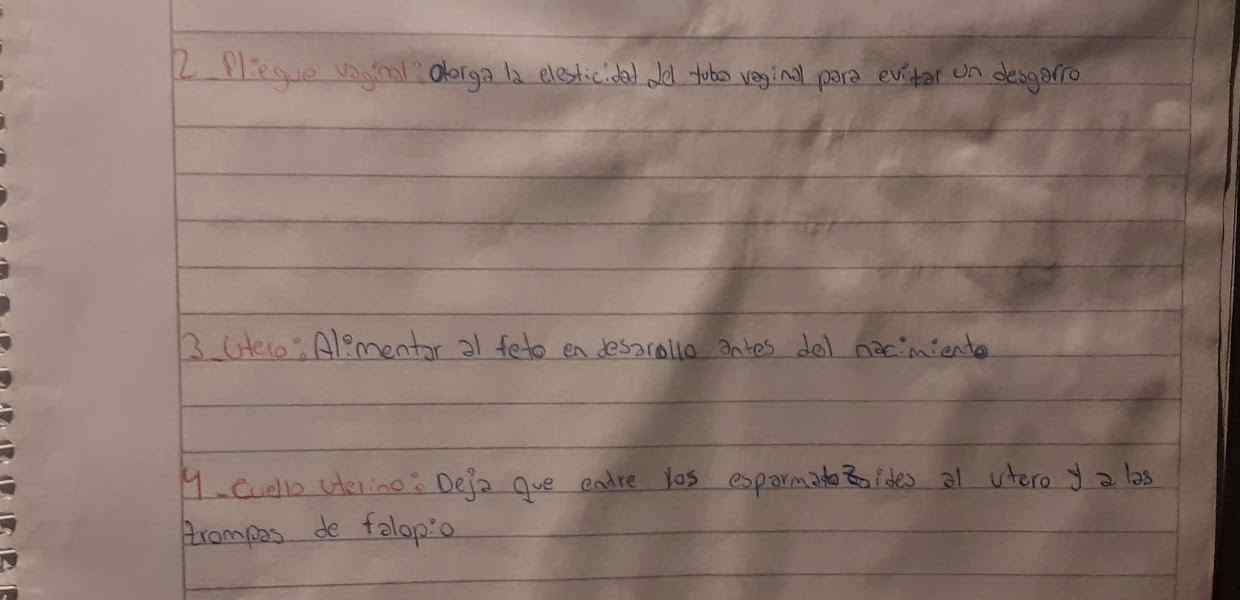 2_ Pliegue vaginal: Otorga la elesticidad del tubo vaginal para evitar un desgarro
3_ Utero: Alimentar al feto en desarollo antes del nacimiento
4_ Cuello uterino: Deja que entre los espermatozoides al utero y a las
trompas de falopio